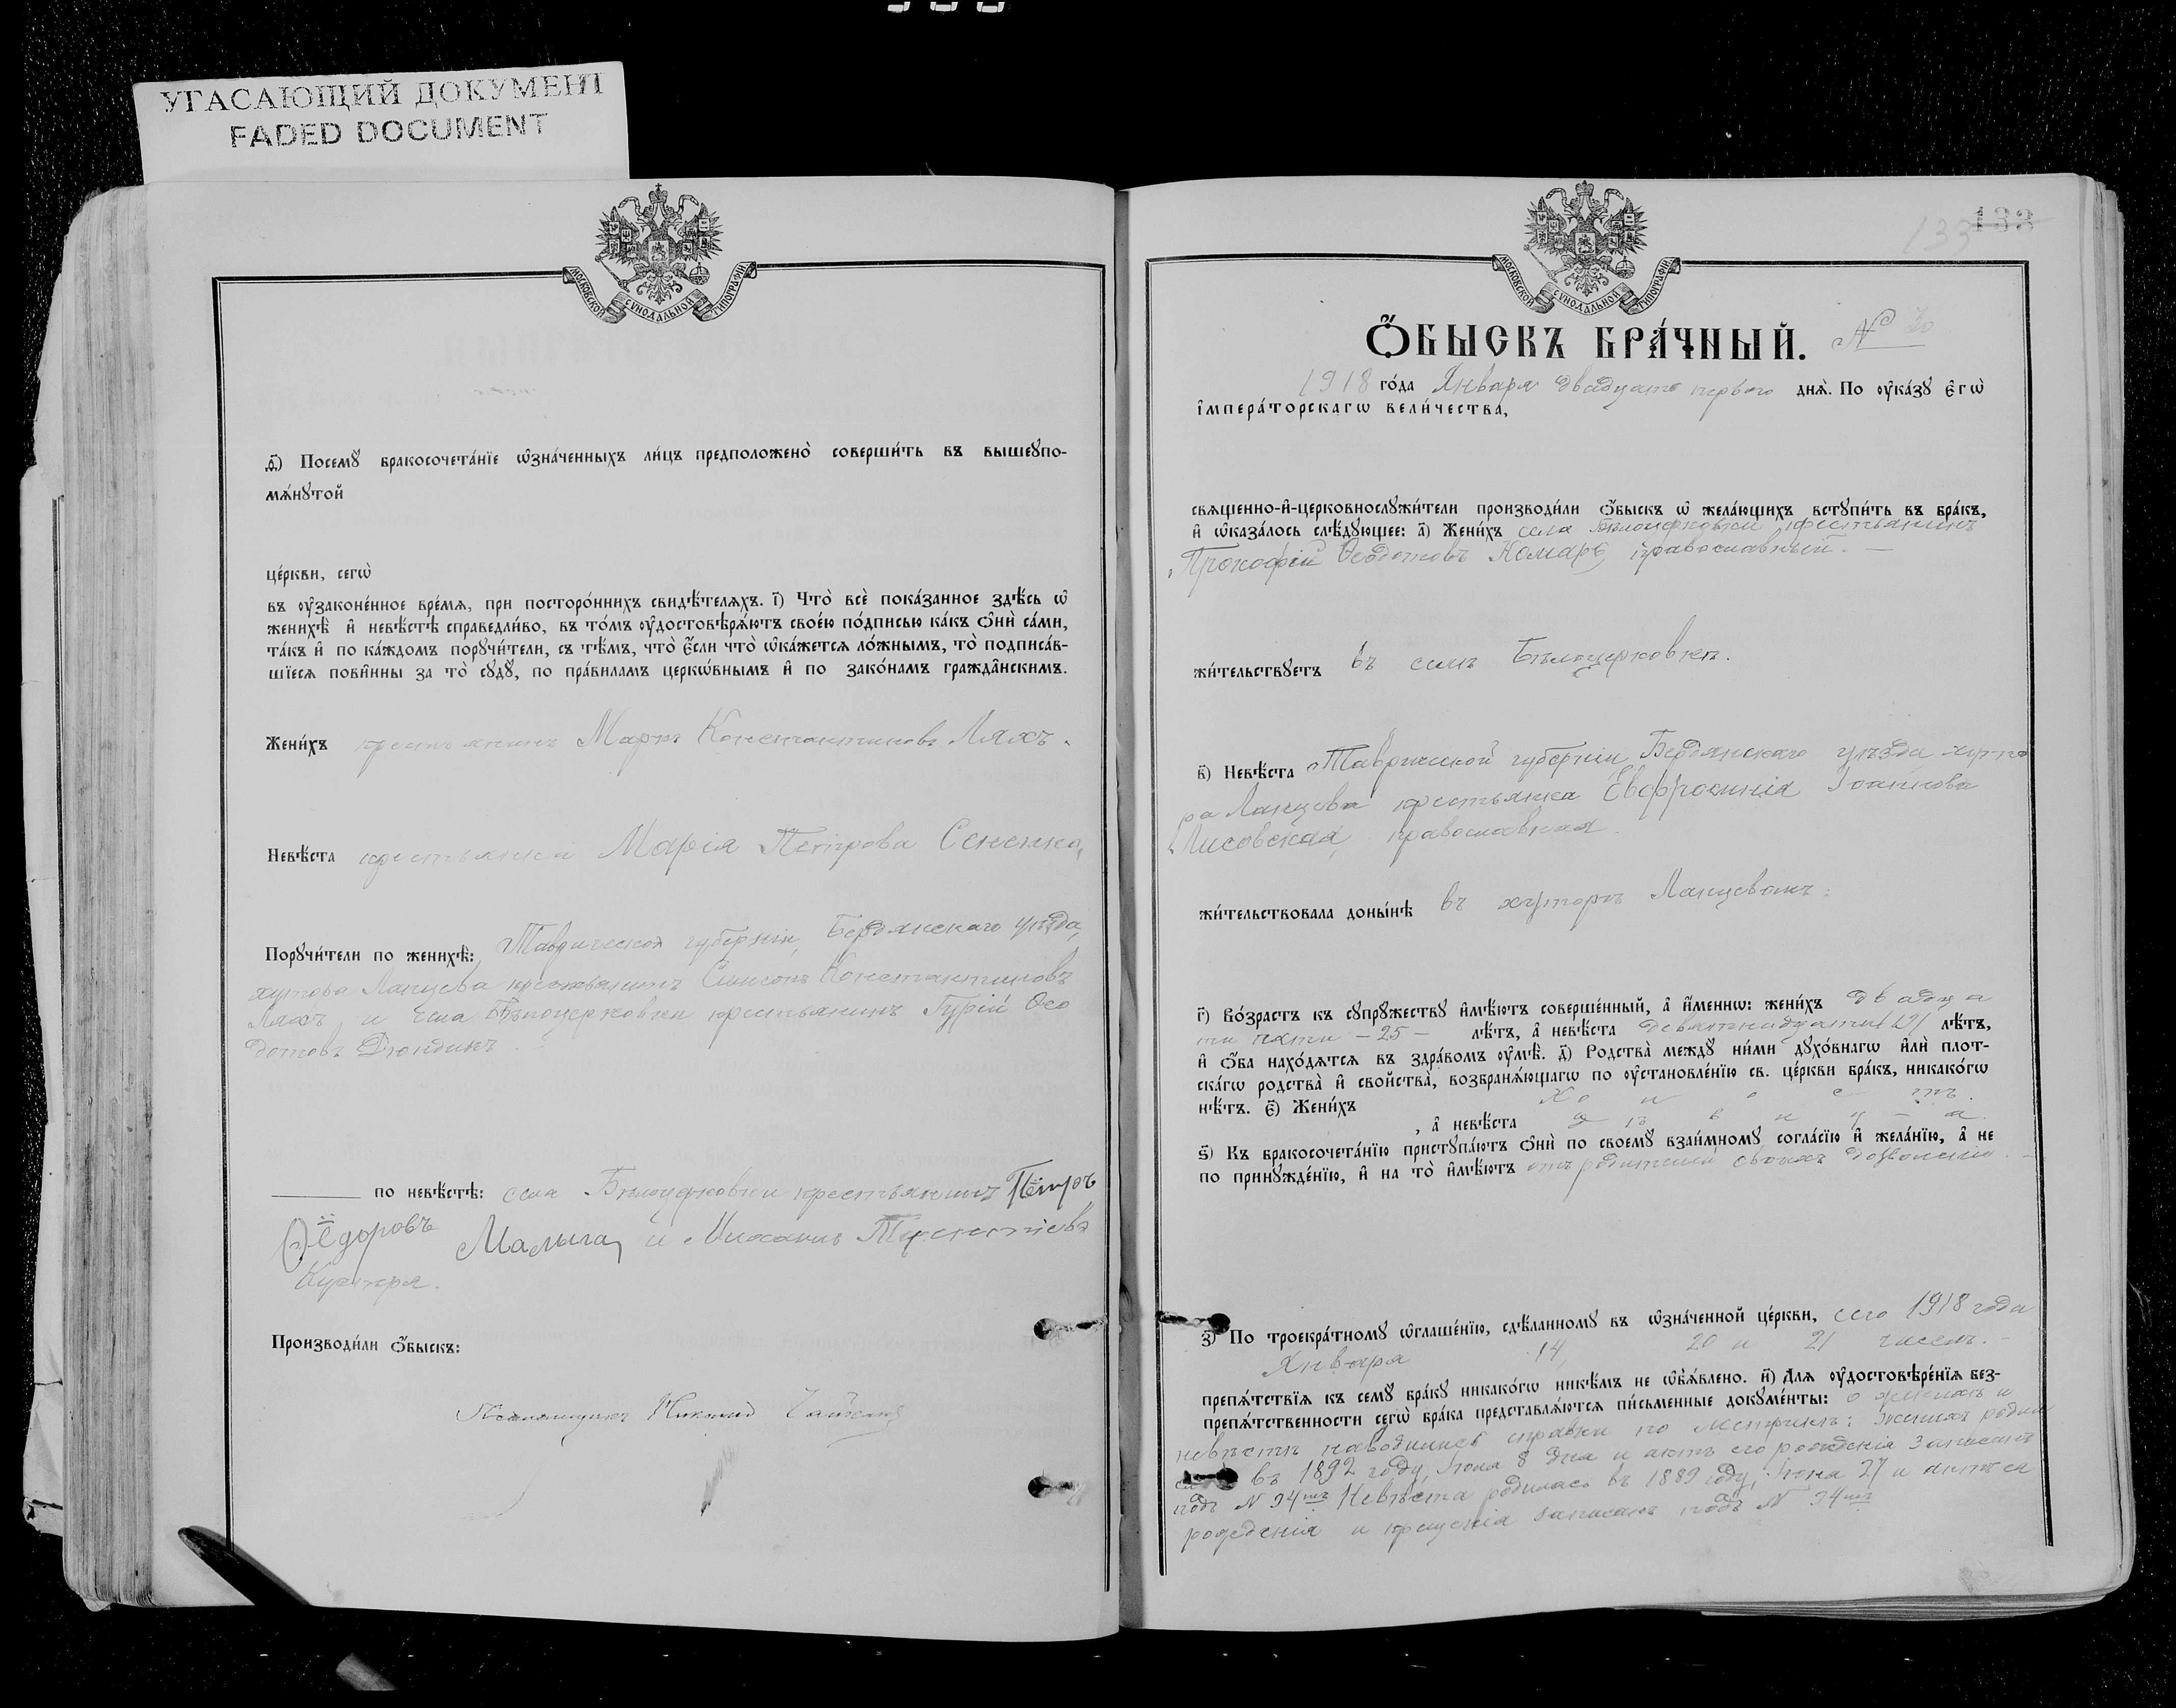 УГАСАЮЩИЙ ДОКУМЕНТ
FADED DOCUMENT
МОСКОВСКОЙ СѴНОДАЛЬНОЙ ТИПОГРАФІИ
ѳ҃) Посемꙋ бракосочета́нїе ѡ҆зна́ченныхъ ли́цъ предположено̀ соверши́ть въ вышеꙋпо-
мѧ́нꙋтой
це́ркви, сегѡ̀
въ ᲂу҆законе́нное вре́мѧ, при посторо́ннихъ свидѣ́телѧхъ. і҃) Что̀ всѐ пока́занное здѣ́сь ѡ҆
женихѣ̀ и҆ невѣ́стѣ справедли́во, въ то́мъ ᲂу҆достовѣрѧ́ютъ свое́ю по́дписью ка́къ ѻ҆нѝ са́ми,
та́къ и҆ по ка́ждомъ порꙋчи́тели, съ тѣ́мъ, что̀ є҆́сли что̀ ѡ҆ка́жетсѧ ло́жнымъ, то̀ подписа́в-
шїесѧ пови́нны за то̀ сꙋдꙋ̀, по пра́виламъ церкѡ́внымъ и҆ по зако́намъ гражда̂нскимъ.
Жени́хъ крестьянинъ Маркъ Константиновъ Ляхъ.
Невѣ́ста крестьянка Марія Петрова Сененко,
Порꙋчи́тели по женихѣ̀: Таврической губерніи, Бердянскаго уѣзда,
хутора Ланцева крестьянинъ Симеонъ Константиновъ
Ляхъ, и села Бѣлоцерковки крестьянинъ Гурій Ѳео
дотовъ Дюндинъ
по невѣ́стѣ: села Бѣлоцерковки крестьянинъ Пётръ
Ѳёдоровъ Малыга, и Михаилъ Терентіевъ
Кустря.
Производи́ли ѻ҆́быскъ:
Псаломщикъ Николай
МОСКОВСКОЙ СѴНОДАЛЬНОЙ ТИПОГРАФІИ
133 133
Ѻ҆́БЫСКЪ БРА́ЧНЫЙ. № 30
1918 го́да Января двадцать перваго днѧ̀. По ᲂу҆ка́зꙋ є҆гѡ̀
і҆мпера́торскагѡ вели́чества,
свѧщенно-и҆-церковнослꙋжи́тели производи́ли ѻ҆́быскъ ѡ҆ жела́ющихъ встꙋпи́ть въ бра́къ,
и҆ ѡ҆каза́лось слѣ́дꙋющее: а҃) Жени́хъ села Бѣлоцерковки крестьянинъ
Прокофій Ѳеодотовъ Комаръ, православный. —
жи́тельствꙋетъ въ селѣ Бѣлоцерковкѣ.
в҃) Невѣ́ста Таврической губерніи, Бердянскаго уѣзда хуто
ра Ланцева крестьянка Евфросинія Іоаннова
Лисовская, православная.
жи́тельствовала доны́нѣ въ хуторѣ Ланцевомъ.
г҃) Во́зрастъ къ сꙋпрꙋ́жествꙋ и҆мѣ́ютъ соверше́нный, а҆ и҆́меннѡ: жени́хъ двадца
ти пяти — 25 — лѣ́тъ, а҆ невѣ́ста девятнадцати 19 лѣ́тъ,
и҆ ѻ҆́ба нахо́дѧтсѧ въ здра́вомъ ᲂу҆мѣ̀. д҃) Родства̀ междꙋ ни́ми дꙋхо́внагѡ и҆лѝ плот-
ска́гѡ родства̀ и҆ свойства̀, возбранѧ́ющагѡ по ᲂу҆становле́нїю св. це́ркви бра́къ, никако́гѡ
нѣ́тъ. є҃) Жени́хъ холостъ.
, а҆ невѣ́ста дѣвица.
ѕ҃) Къ бракосочета́нїю пристꙋпа́ютъ ѻ҆нѝ по своемꙋ̀ взаи́мномꙋ согла́сїю и҆ жела́нїю, а҆ не
по принꙋжде́нїю, и҆ на то̀ и҆мѣ́ютъ отъ родителей своихъ дозволеніе. —
з҃) По троекра́тномꙋ ѡ҆глаше́нїю, сдѣ́ланномꙋ въ ѡ҆зна́ченной це́ркви, сего 1918 года
Января 14, 20 и 21 чиселъ. —
препѧ́тствїѧ къ семꙋ̀ бра́кꙋ никако́гѡ никѣ́мъ не ѡ҆б̾ѧ́влено. и҃) Длѧ ᲂу҆достовѣре́нїѧ без-
препѧ́тственности сегѡ̀ бра́ка представлѧ́ютсѧ пи́сьменные докꙋме́нты: о женихѣ и
невѣстѣ наводились справки по метрикѣ: женихъ родил
ся въ 1892 году, Іюля 8 дня и актъ его рожденія записанъ
подъ № 94мъ Невѣста родилась въ 1889 году, Іюня 27 и актъ ея
рожденія и крещенія записанъ подъ № 94мъ